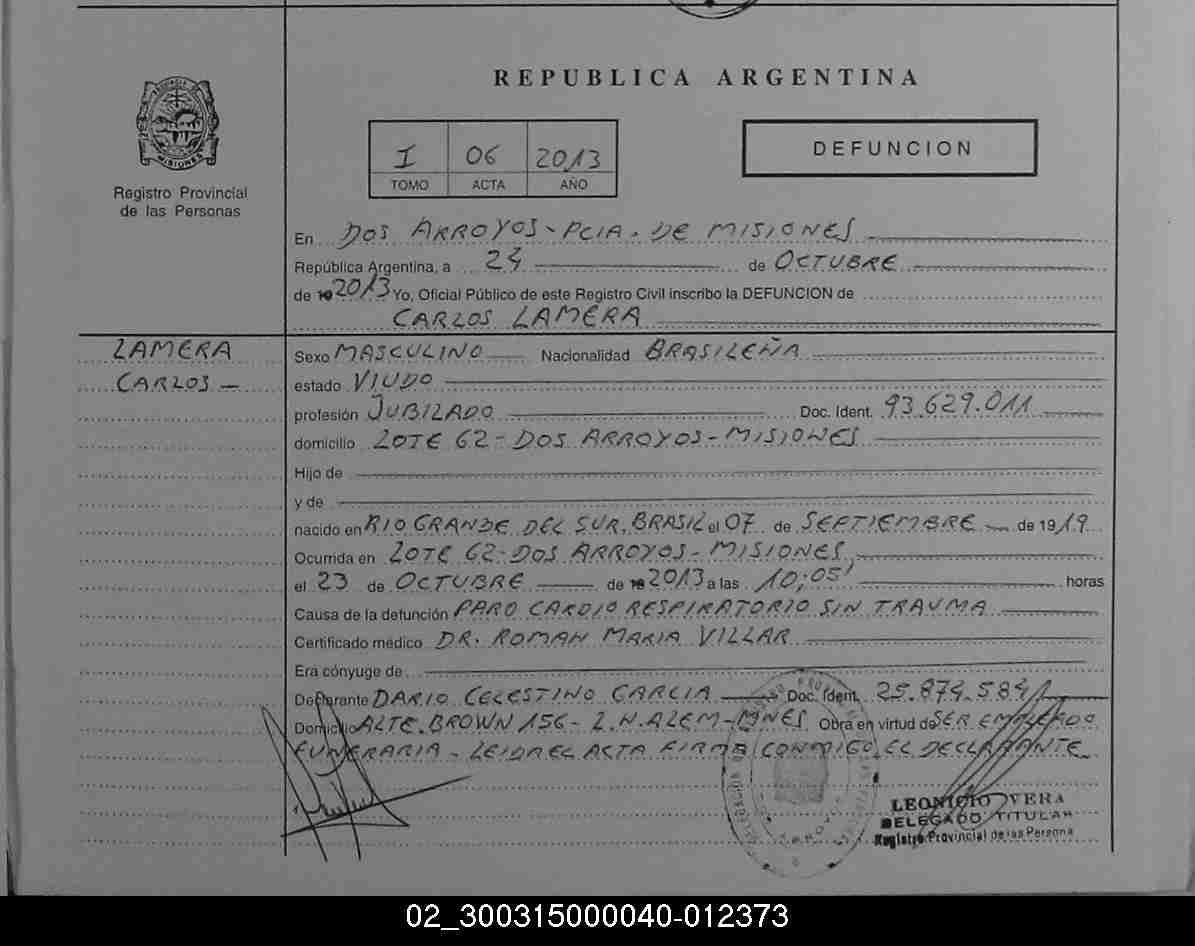 REPUBLICA ARGENTINA
MISIONES
Registro Provincial
de las Personas
I 06 2013
TOMO ACTA AÑO
DEFUNCION
En DOS ARROYOS - PCIA. DE MISIONES
República Argentina, a 24 de OCTUBRE
de 19 2013 Yo, Oficial Público de este Registro Civil inscribo la DEFUNCION de
CARLOS LAMERA
LAMERA
CARLOS -
Sexo MASCULINO Nacionalidad BRASILEÑA
estado VIUDO
profesión JUBILADO Doc. Ident. 93.629.011
domicilio LOTE 62 - DOS ARROYOS - MISIONES
Hijo de
y de
nacido en RIO GRANDE DEL SUR, BRASIL el 07 de SEPTIEMBRE de 1919
Ocurrida en LOTE 62 - DOS ARROYOS - MISIONES
el 23 de OCTUBRE de 19 2013 a las 10:05' horas
Causa de la defunción PARO CARDIO RESPIRATORIO SIN TRAUMA
Certificado médico DR. ROMAN MARIA VILLAR
Era cónyuge de
Declarante DARIO CELESTINO GARCIA Doc. Ident. 25.874.584
Domicilio ALTE. BROWN 156 - L.N.ALEM - MNES Obra en virtud de SER EMPLEADO
FUNERARIA - LEIDA EL ACTA FIRMA CONMIGO EL DECLARANTE
LEONICIO VERA
DELEGADO TITULAR
Registro Provincial de las Persona
02_300315000040-012373